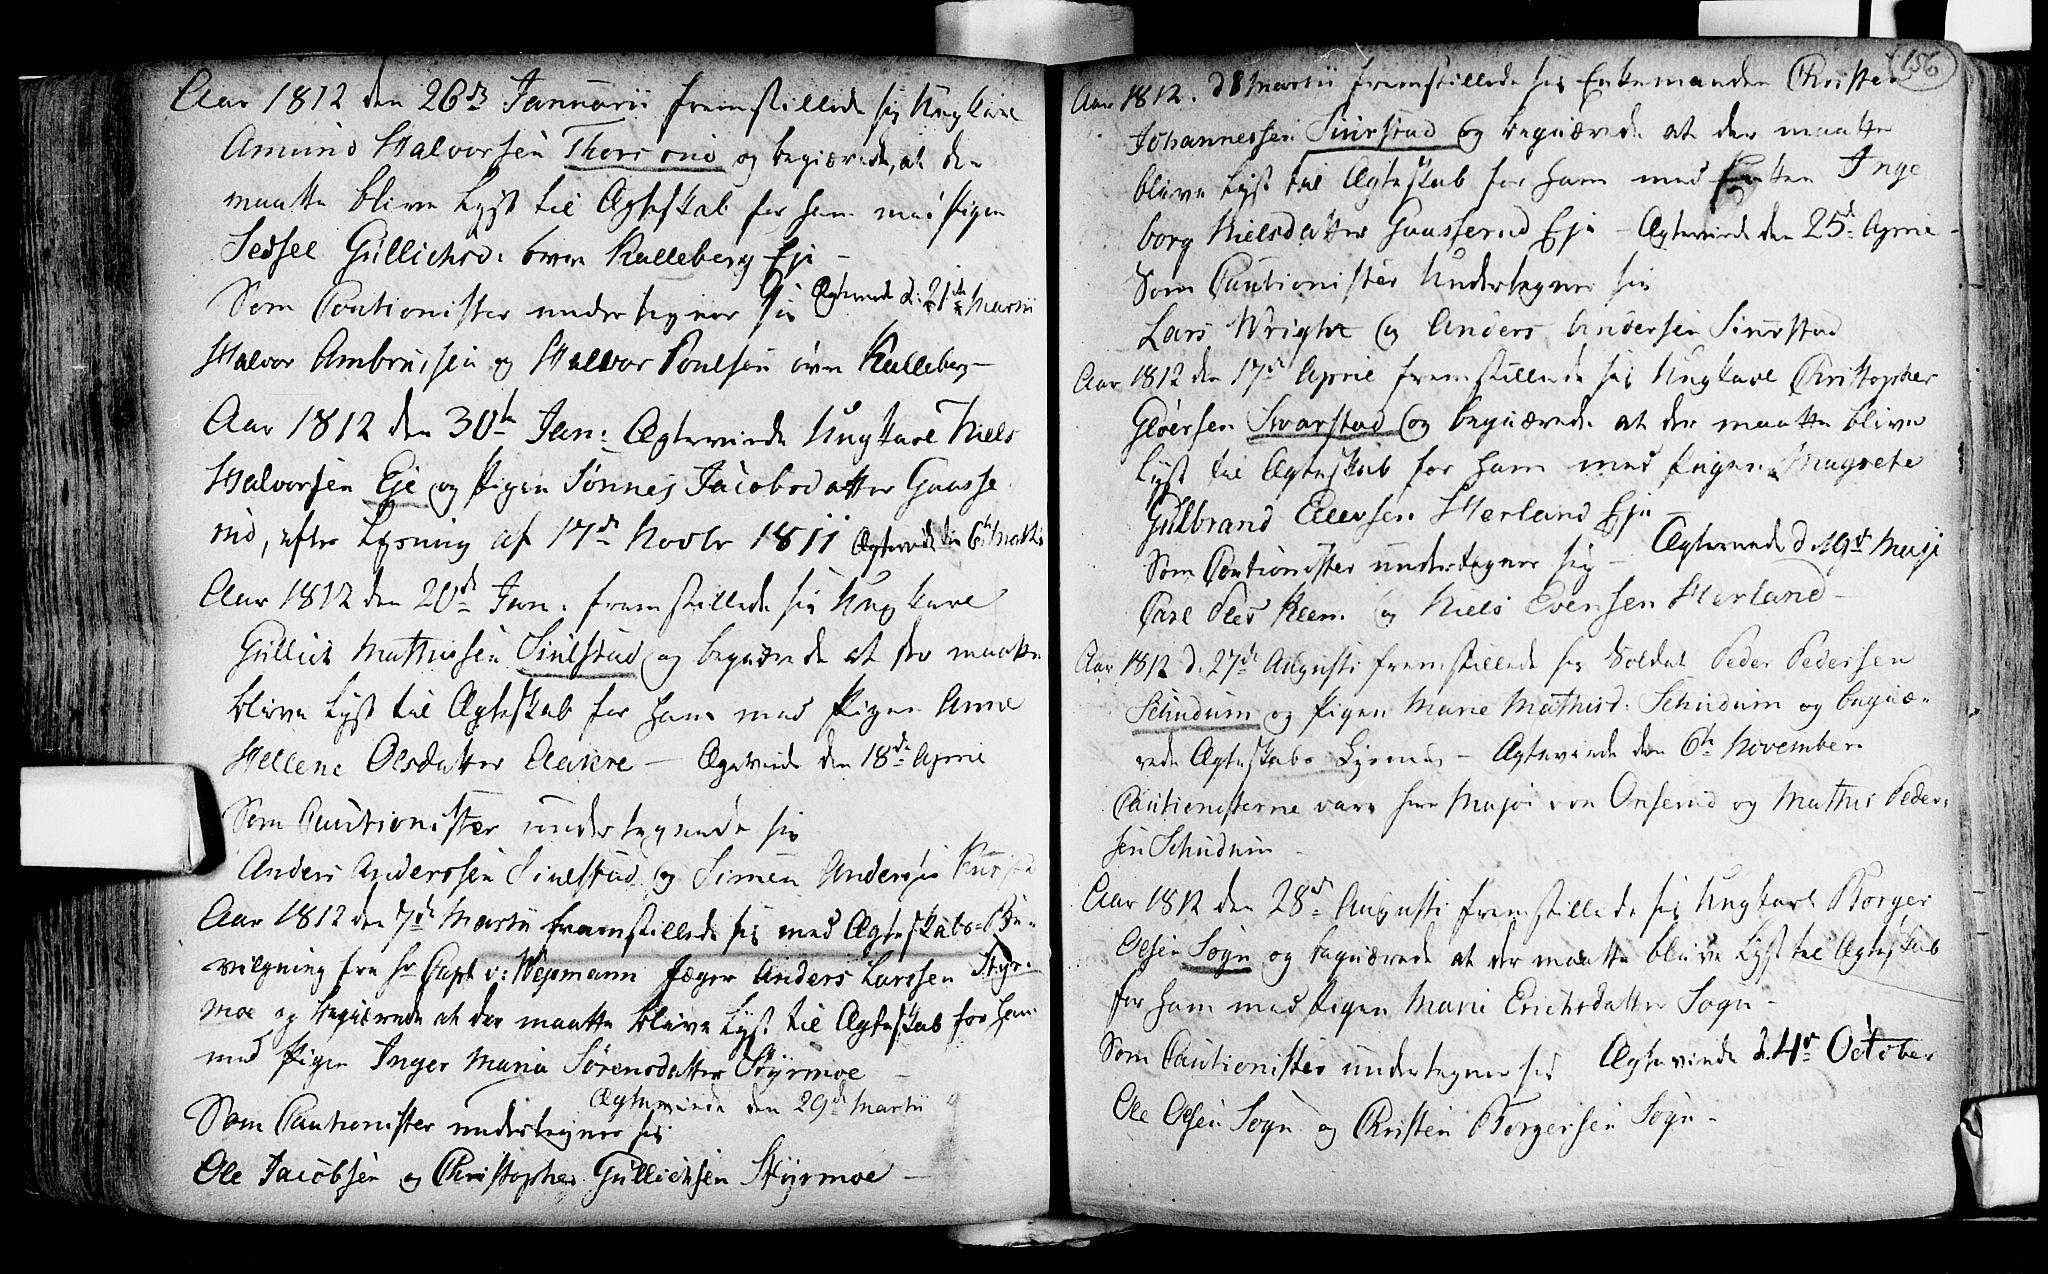 Aar 1812 den 26de Januarii fremstillede sig Ungkarl
Amund Halvorsen Thorsrud og begiærede, at der
maatte blive Lyst til Ægteskab for ham med Pigen
Sedsel Gullichsd: øvre Kalleberg Eje –
Som Cautionister undertegner sig Ægteviede d: 21de Martii
Halvor Ambrussen og Halvor Poulsen øvre Kalleberg –
Aar 1812 den 30te Jan: Ægteviede Ungkarl Niels
Halvorsen Eje og Pigen Jacobsdatter Gaasse
rud, efter Lysning af 17de Novbr 1811 Ægteviede den 6te
Aar 1812 den 20de Jan: fremstillede sig Ungkarl
Gullich Mathissen og begiærede at der maatte
blive Lyst til Ægteskab for ham med Pigen Anne
Hellene Olsdatter Aakre – Ægteviede den 18de April
Som Cautionister undertegnede sig
Anders Anderssen og Simen Andersen
Aar 1812 den 7de Martii fremstillede sig med Ægteskabs-Be-
vilgning fra Hr Capt v: Wepmann Jæger Anders Larssen Styr-
moe og begiærede at der maatte blive Lyst til Ægteskab for ham
med Pigen Inger Maria Sørensdatter Styrmoe –
Ægteviede den 29de Martii
Som Cautionister undertegner sig
Ole Jacobsen og Christopher Gullichsen Styrmoe –
156
Aar 1812. d 8 Martii fremstillede sig Enkemanden Christen
Johannessen og begiærede at der maatte
blive Lyst til Ægteskab for ham med Inge
borg Nielsdatter Gaasserud Eje – Ægteviede den 25de April –
Som Cautionister Undertegner sig
Lars Wright og Anders Andersen
Aar 1812 den 17de April fremstillede sig Ungkarl Christopher
Gloersen Svarstad og begiærede at der maatte blive
Lyst til Ægteskab for ham med Pigen Magrete
Gulbrand Ellevsen Herland Eje –
Som Cautionister undertegner sig – Ægteviede d. 19de Maji
Carl Klem. og Niels Evensen Herland –
Aar 1812 d. 27de Augusti fremstillede sig Soldat Peder Pedersen
Schudum og Pigen Marie Mathisd: Schudum og begiæ-
rede Ægteskabs Lysning – Ægteviede den 6te November
Cautionisterne vare Herr Major von Onserud og Mathis Peder-
sen Schudum –
Aar 1812 den 28de Augusti fremstillede sig Ungkarl Borger
Olsen Sogn og begiærede at der maatte blive Lyst til Ægteskab
for ham med Pigen Mari Erichsdatter Sogn –
Som Cautionister undertegner sig Ægteviede d. 4de October
Ole Olsen Sogn og Christen Borgersen Sogn –